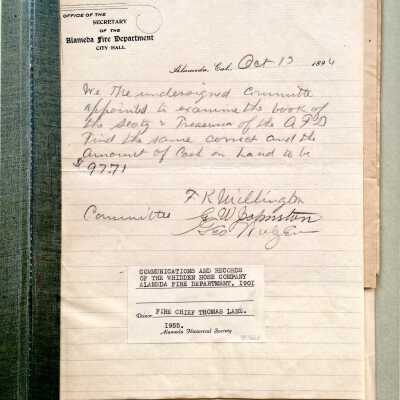 OFFICE OF THE
SECRETARY
OF THE
Alameda Fire Department
CITY HALL
Alameda, Cal. Oct 13 1894
We the undersigned Committe
appointed to examine the book of
the Secty & Treasurer of the A.F.D
Find the same correct and the
Amount of Cash on Hand to be
$97.71
F K Millington
Committee Geo W Johnston
Geo
COMMUNICATIONS AND RECORDS
OF THE WHIDDEN HOSE COMPANY
ALAMEDA FIRE DEPARTMENT, 1901
Donor FIRE CHIEF THOMAS LANE.
1955.
Alameda Historical Society